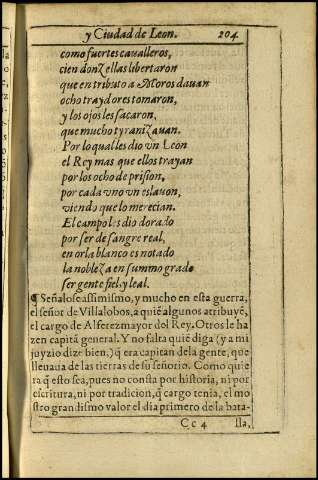 y Ciudad de Leon. 204
como fuertes caualleros,
cien donzellas libertaron
que en tributo a Moros dauan
ocho traydores tomaron,
y los ojos les sacaron,
que mucho tyranizauan.
Por lo qual les dio vn Leon
el Rey mas que ellos trayan
por los ocho de prision,
por cada vno vn eslauon,
viendo que lo merecian.
El campo les dio dorado
por ser de sangre real,
en orla blanco es notado
la nobleza en summo grado
ser gente fiel y leal.
¶ Señalose assimismo, y mucho en esta guerra,
el señor de Villalobos, a quiẽ algunos atribuyẽ,
el cargo de Alferezmayor del Rey. Otros le ha
zen capitã general. Y no falta quiẽ diga (y a mi
juyzio dize bien,) q̃ era capitan dela gente, que
lleuaua de las tierras de su señorio. Como quie
ra q̃ esto sea, pues no consta por historia, ni por
escritura, ni por tradicion, q̃ cargo tenia, el mo
stro grandismo valor el dia primero de la bata-
Cc 4 lla,